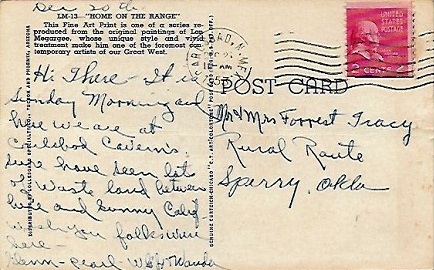 Dec 20th
LM-13—"HOME ON THE RANGE"
This Fine Art Print is one of a series re-
produced from the original paintings of Lon
Megargee, whose unique style and vivid
treatment make him one of the foremost con-
temporary artists of our Great West.
Hi There - It is
Sunday Morning and
here we are at
Carlsbad Caverns.
Sure have seen lots
of waste land between
here and Sunny Calif.
wish you folks were
here -
Glenn - pearl - Wanda
CARLSBAD, N. MEX.
UNITED STATES
POSTAGE
2 CENTS 2
POST CARD
Mr & Mrs Forrest Tracy
Rural Route
Sperry, Okla